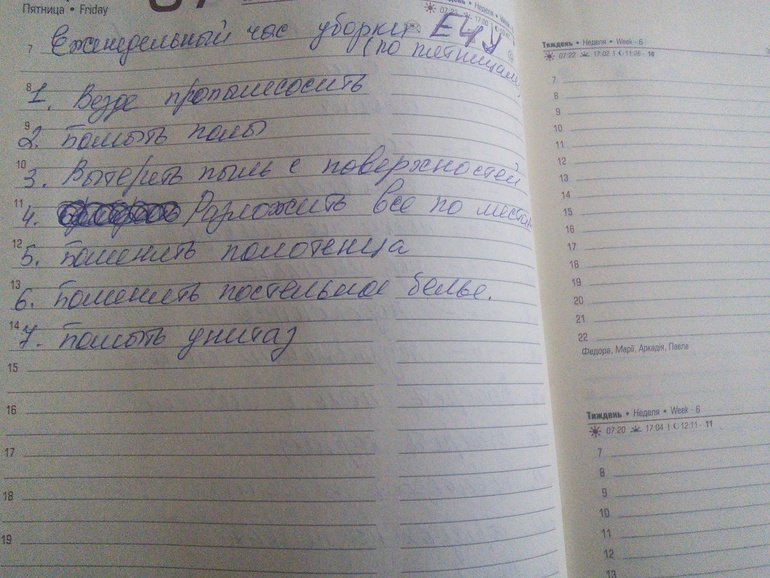 П'ятниця • Friday
Тиждень • Неделя • Week - 6
07:22 17:00
Еженедельный час уборки ЕЧУ
(по пятницам)
7
8
1. Везде пропылесосить
9
2. Помыть полы
10
3. Вытереть пыль с поверхностей
11
4. Разложить все по местам
12
5. Поменять полотенца
13
6. Поменять постельное белье.
14
7. Помыть унитаз
15
16
17
18
19
Тиждень • Неделя • Week - 6
07:22 17:02 11:36 - 10
7
8
9
10
11
12
13
14
15
16
17
18
19
20
21
22
Федора, Марії, Аркадія, Павла
Тиждень • Неделя • Week - 6
07:20 17:04 12:11 - 11
7
8
9
10
11
12
13